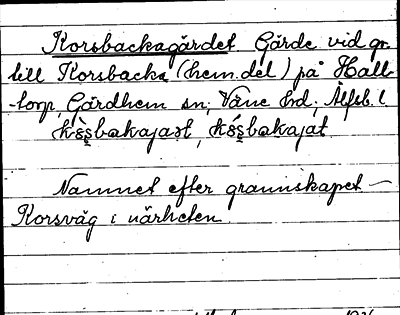 Korsbackagärdet Gärde vid gr.
till Korsbacka (hem.del) på Hall-
-torp Gärdhem sn; Väne hd; Älfsb. l
Namnet efter grannskapet —
Korsväg i närheten